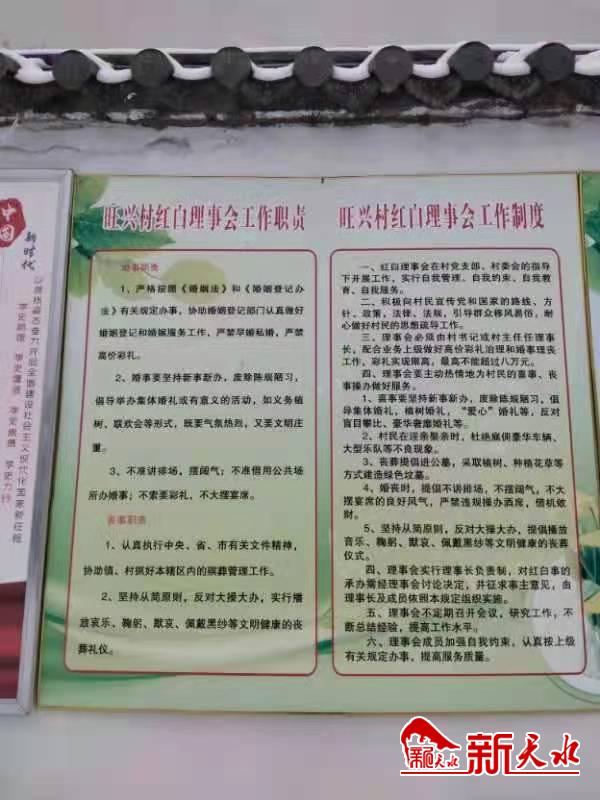 中国
新时代
以昂扬姿态奋力开启全面建设社会主义现代化国家新征程
学史明理 学史增信 学史崇德 学史力行
旺兴村红白理事会工作职责
婚事职责
1、严格按照《婚姻法》和《婚姻登记办
法》有关规定办事，协助婚姻登记部门认真做好
婚姻登记和婚嫁服务工作，严禁早婚私婚，严禁
高价彩礼。
2、婚事要坚持新事新办，废除陈规陋习，
倡导举办集体婚礼或有意义的活动，如义务植
树、联欢会等形式，既要气氛热烈，又要文明庄
重。
3、不准讲排场，摆阔气；不准借用公共场
所办婚事；不索要彩礼，不大摆宴席。
丧事职责
1、认真执行中央、省、市有关文件精神，
协助镇、村抓好本辖区内的殡葬管理工作。
2、坚持从简原则，反对大操大办，实行播
放哀乐、鞠躬、默哀、佩戴黑纱等文明健康的丧
葬礼仪。
旺兴村红白理事会工作制度
一、红白理事会在村党支部、村委会的指导
下开展工作，实行自我管理、自我约束、自我教
育、自我服务。
二、积极向村民宣传党和国家的路线、方
针、政策，法律、法规，引导群众移风易俗，耐
心做好村民的思想疏导工作。
三、理事会必须由村书记或村主任任理事
长，配合业务上级做好高价彩礼治理和婚事理丧
工作，彩礼实现限高，最高不能超过八万元。
四、理事会要主动热情地为村民的喜事、丧
事操办做好服务。
1、喜事要坚持新事新办，废除陈规陋习，倡
导集体婚礼，植树婚礼，“爱心”婚礼等，反对
盲目攀比、豪华奢靡婚礼等。
2、村民在迎亲娶亲时，杜绝雇俱豪华车辆、
大型乐队等不良现象。
3、丧葬提倡进公墓，采取植树、种植花草等
方式建造绿色坟墓。
4、婚丧时，提倡不讲排场，不摆阔气，不大
摆宴席的良好风气，严禁违规操办酒席，借机敛
财。
5、坚持从简原则，反对大操大办，提倡播放
音乐、鞠躬、默哀、佩戴黑纱等文明健康的丧葬
仪式。
四、理事会实行理事长负责制，对红白事的
承办需经理事会讨论决定，并征求事主意见，由
理事长及成员依照本规定组织实施。
五、理事会不定期召开会议，研究工作，不
断总结经验，提高工作水平。
六、理事会成员加强自我约束，认真按上级
有关规定办事，提高服务质量。
新天水